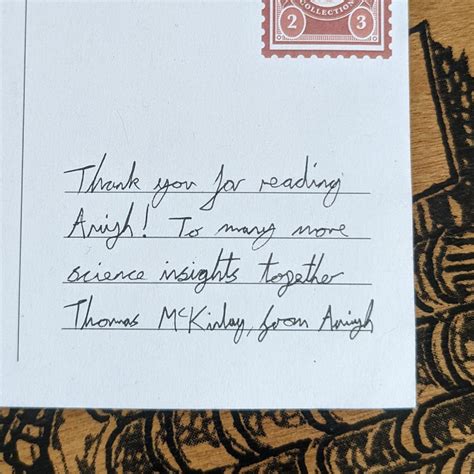 COLLECTION
2 3
Thank you for reading
Ariyh! To many more
science insights together
Thomas McKinlay, from Ariyh